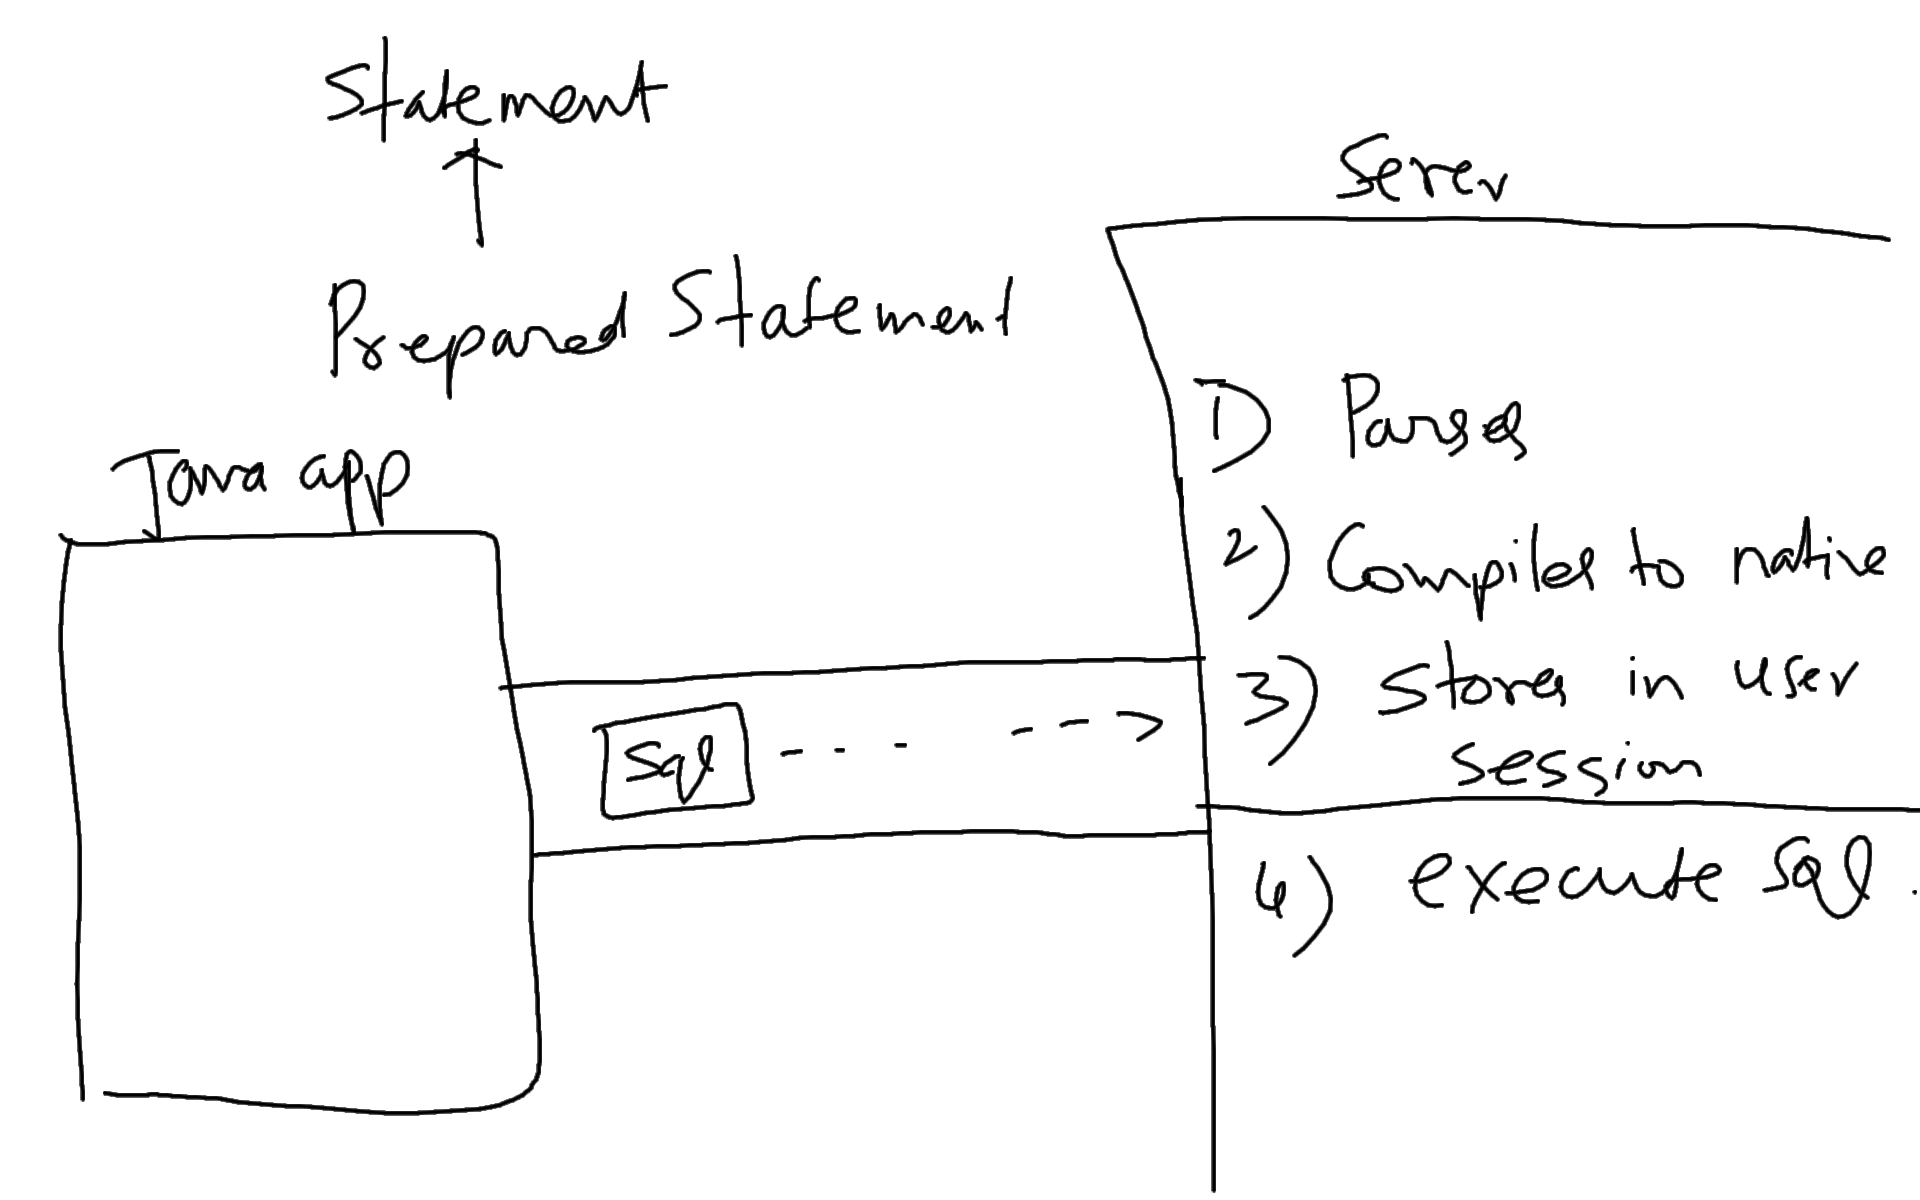 Statement
Prepared Statement
Java app
Sql
Serer
1) Parses
2) Compiles to native
3) Stores in user
session
4) execute sql.